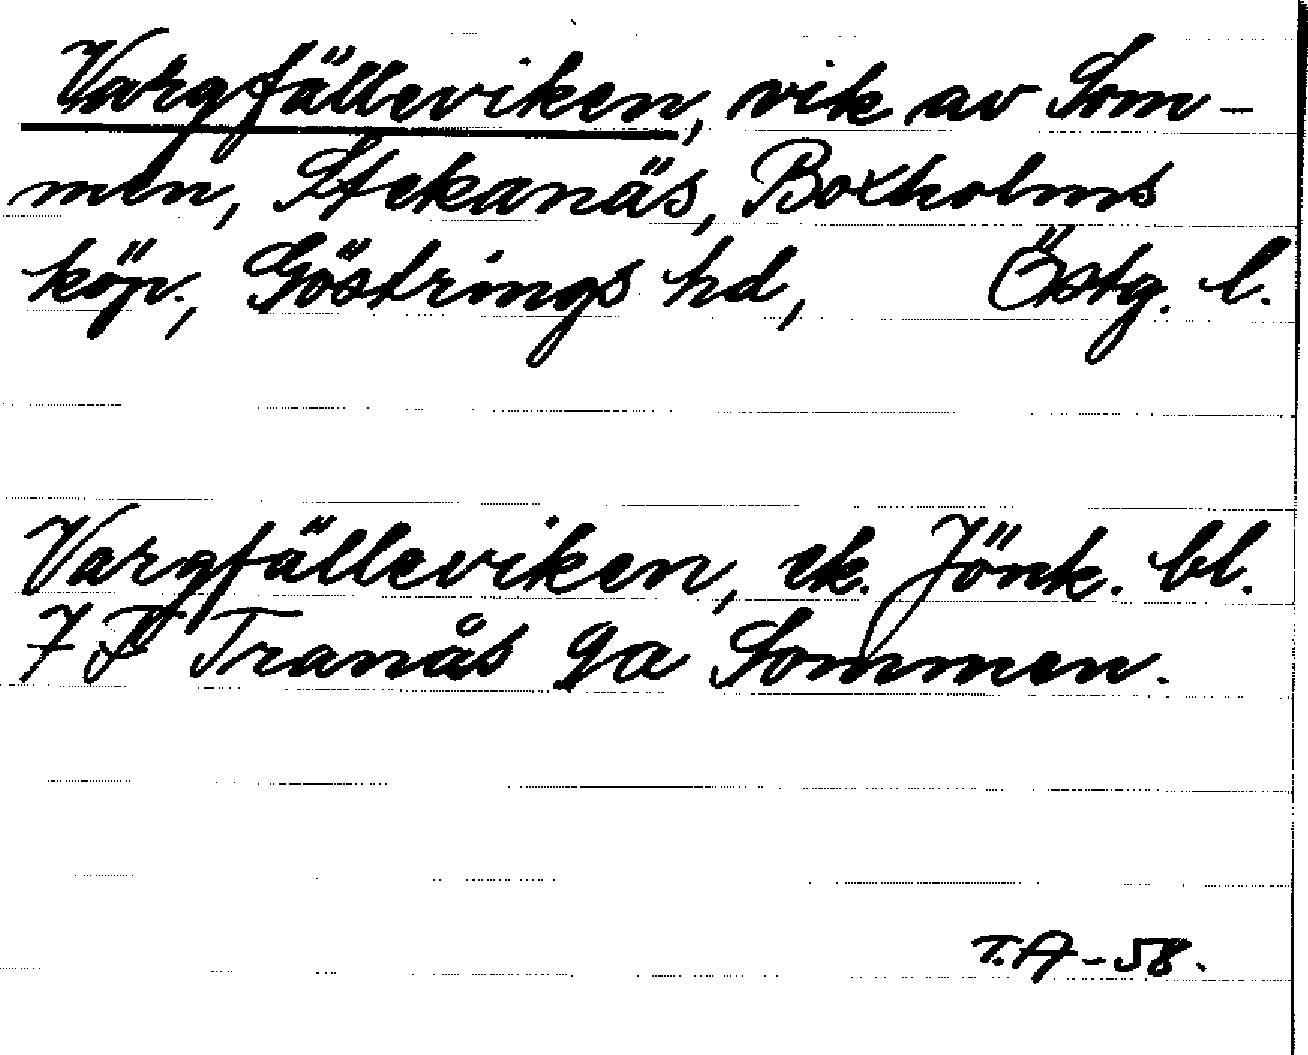 Vargfälleviken, vik av Som-
men, Stekanäs, Boxholms
köp., Göstrings hd, Östg. l.
Vargfälleviken, ek. Jönk. bl.
7 F Tranås ga Sommen.
T.A-58.